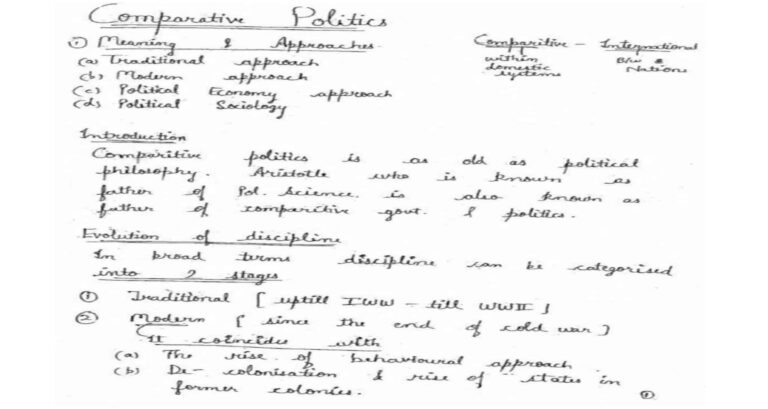 Comparative Politics
① Meaning & Approaches.
(a) Traditional approach
(b) Modern approach
(c) Political Economy approach
(d) Political Sociology
Comparitive - International
within B/w &
domestic Nations
systems
Introduction
Comparitive politics is as old as political
philosophy. Aristotle who is known as
father of Pol. Science. is also known as
father of comparitive govt. & politics.
Evolution of discipline
In broad terms discipline can be categorised
into 2 stages
① Traditional [ uptill IWW - till WWII ]
② Modern [ since the end of cold war ]
It coincides with
(a) The rise of behavioural approach
(b) De-colonisation & rise of states in
former colonies.
①